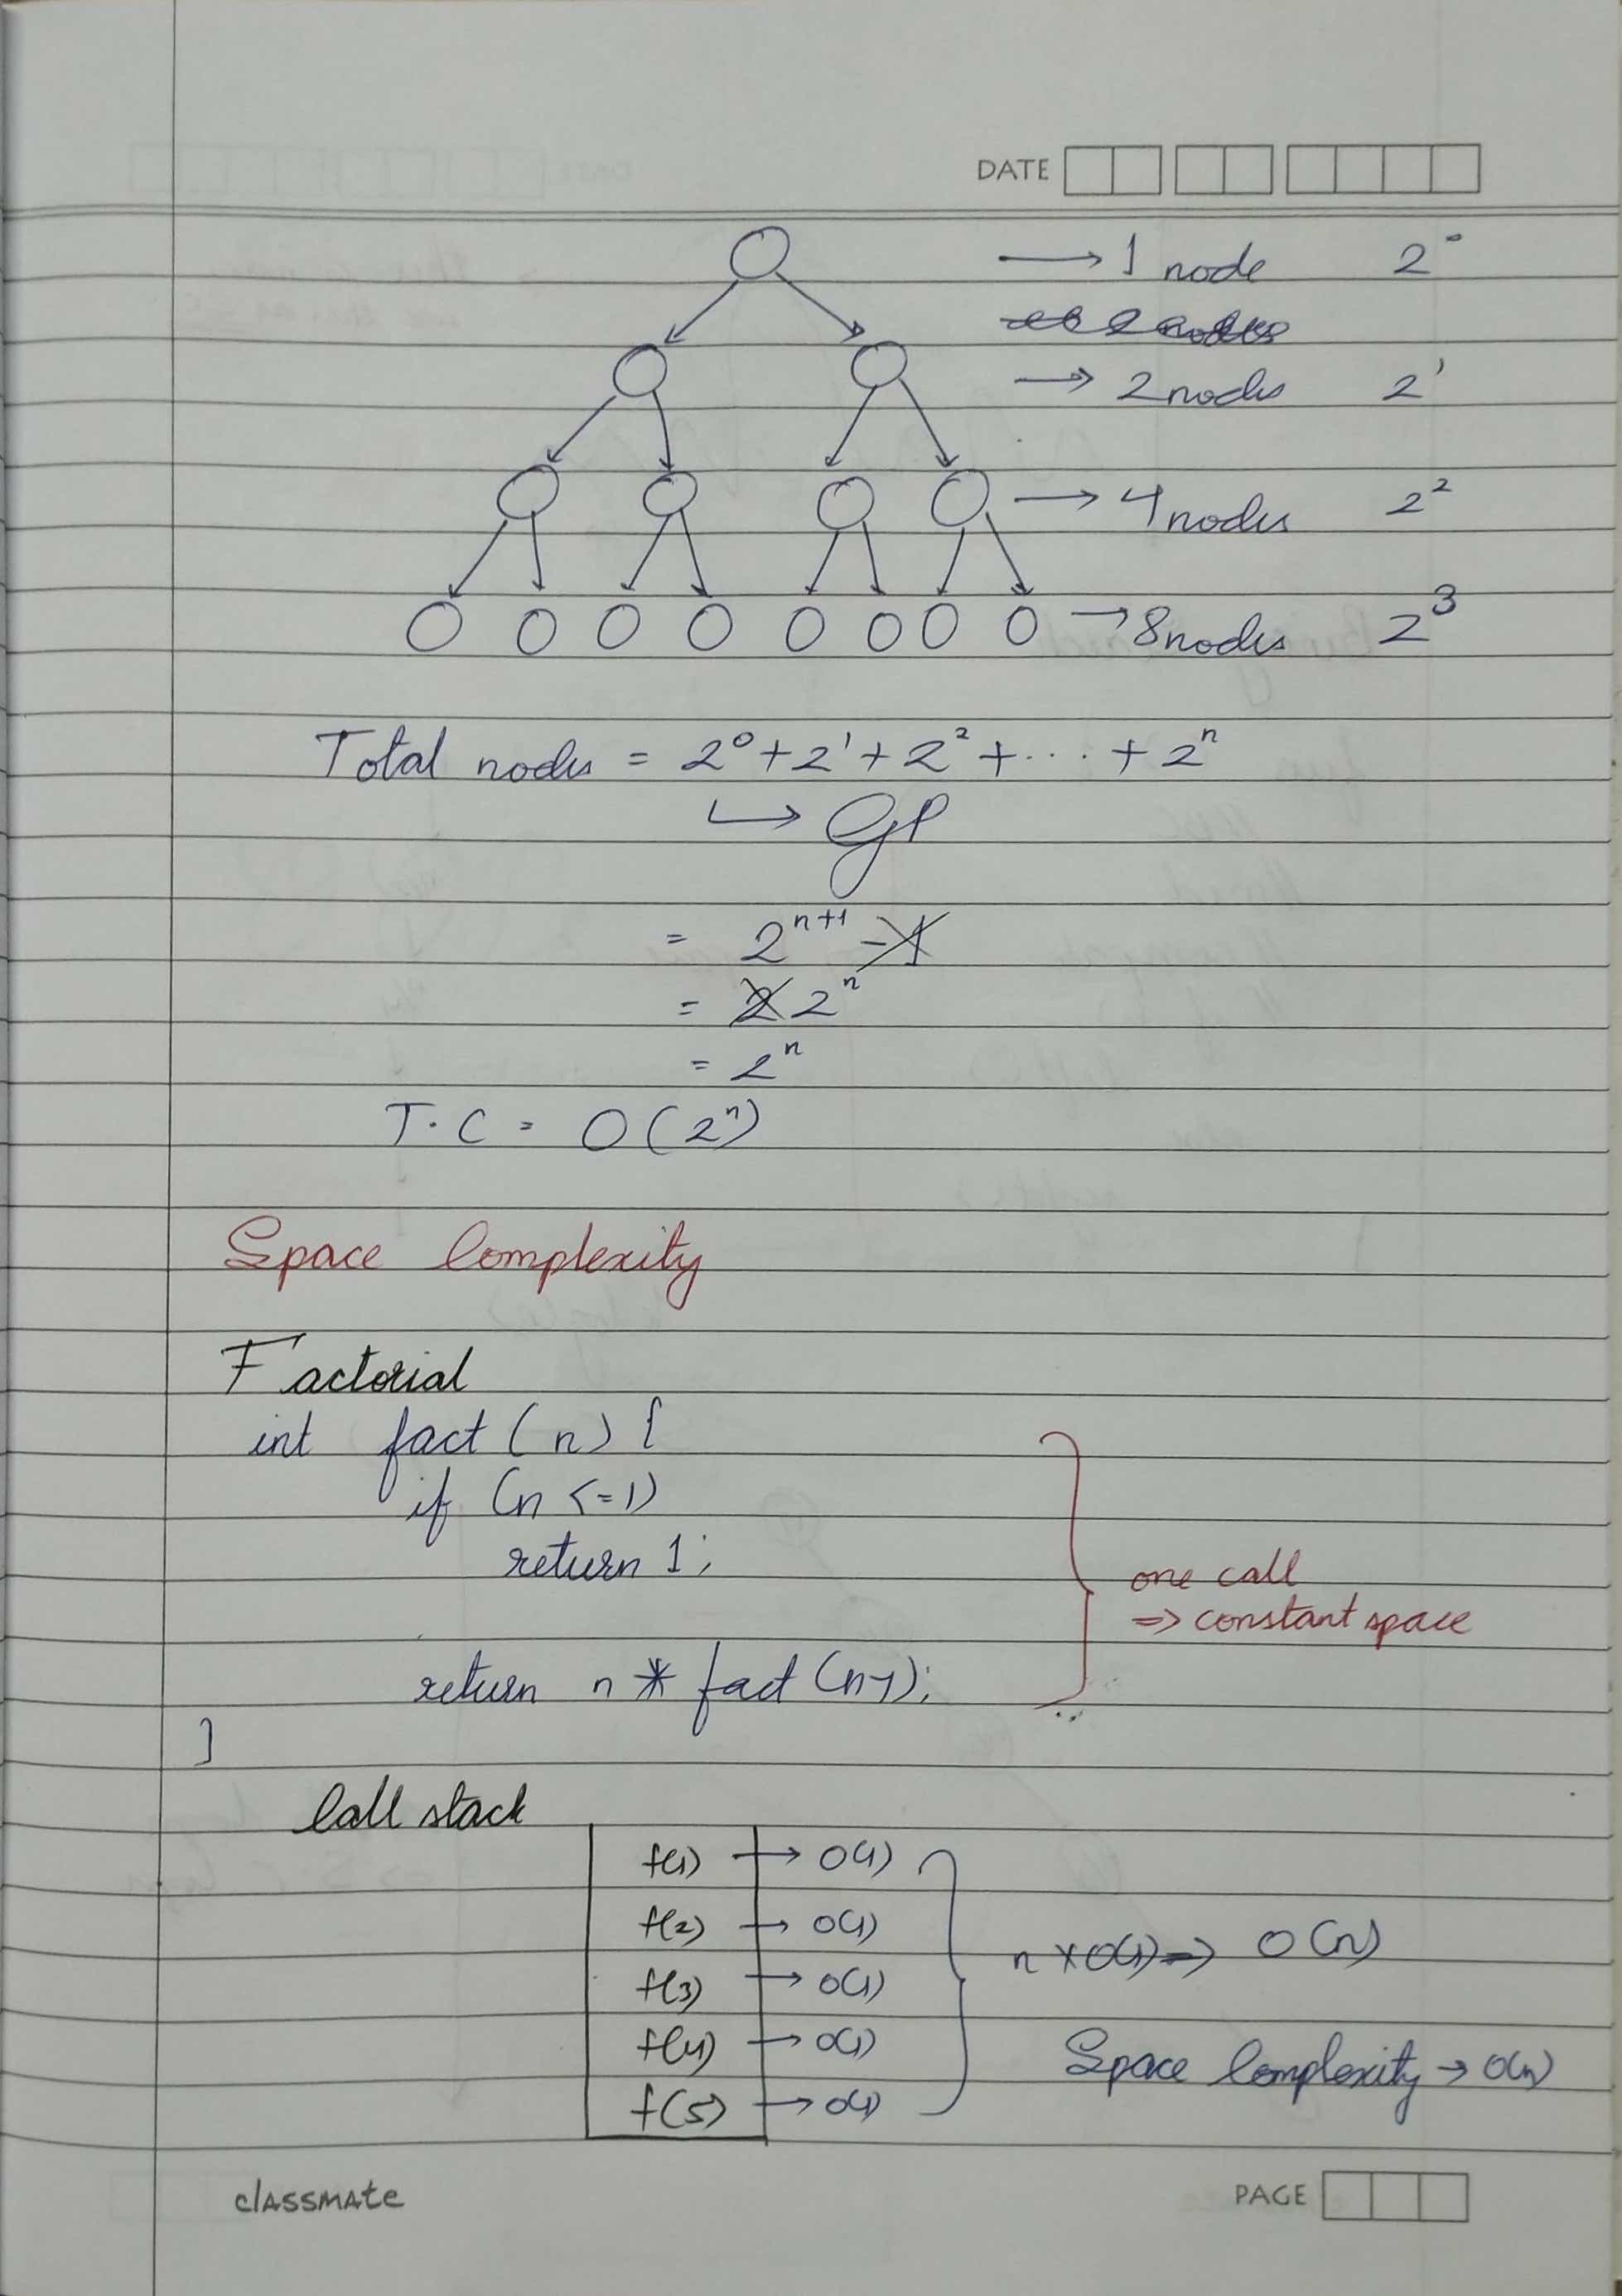 DATE
→ 1 node 2⁰
→ 2 nodes 2¹
→ 4 nodes 2²
→ 8 nodes 2³
Total nodes = 2⁰ + 2¹ + 2² + ... + 2ⁿ
↳ GP
= 2ⁿ⁺¹ - 1
= 2 2ⁿ
= 2ⁿ
T.C = O(2ⁿ)
Space Complexity
Factorial
int fact (n) {
if (n <= 1)
return 1;
one call
=> constant space
return n * fact (n-1);
}
Call stack
f(1) → O(1)
f(2) → O(1)
n × O(1) => O(n)
f(3) → O(1)
f(4) → O(1)
Space Complexity → O(n)
f(5) → O(1)
classmate PAGE